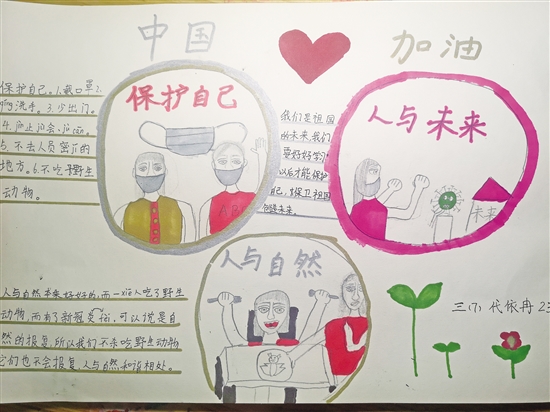 中国 加油
保护自己。1.戴口罩2.
qín洗手。3.少出门。
4.
5.不去人员密jí的
地方。6.不吃野生
动物。
保护自己
我们是祖国
的未来,我们
要好好学习
以后才能保护
自己,保卫祖国
未来。
人与未来
未来
人与自然
人与自然本来好好的,而一xiē人吃了野生
动物,而有了新冠 可以说是自
然的报复,所以我们不来吃野生动物
它们也不会报复,人与自然和谐相处。
三(7) 代依冉 23